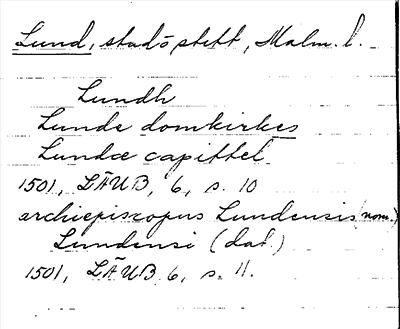 Lund, stads stift, Malm. l.
Lundh
Lunde domkirkes
Lundæ capittel
1501, LÄUB, 6, s. 10
archiepiscopus Lundensis (nom.)
Lundensi (dat.)
1501, LÄUB 6, s. 11.